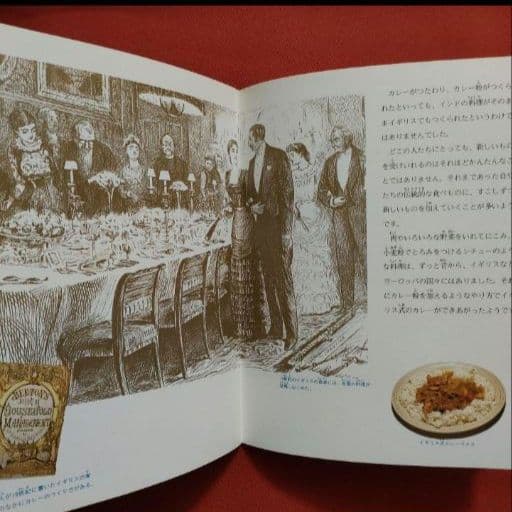 カレーがつたわり、カレー粉がつくら
れたといっても、インドの料理がそのま
まイギリスでもつくられたというわけで
はありませんでした。
どこの人たちにとっても、新しいもの
を受けいれるのはそれほどかんたんなこ
とではありません。それまであった自分
たちの伝統的な食べものに、すこしずつ
新しいものを加えていくことが多いよう
です。
肉やいろいろな野菜をいれてにこみ、
小麦粉でとろみをつけるシチューのよう
な料理は、ずっと昔から、イギリスなど
ヨーロッパの国々にはありました。それ
にカレー粉を加えるようなやり方でイギ
リス式のカレーができあがったようで
BEETON'S
BOOK OF
HOUSEHOLD
MANAGEMENT
人が19世紀に書いたイギリスの
のなかにカレーのつくり方がある。
イギリス式カレーライス